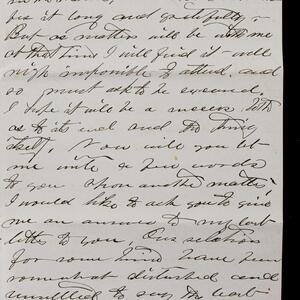 for it long and gratefully.
But as matters will be with me
at that time I will find it well
nigh impossible to attend, and
so must ask to be excused.
I hope it will be a success, both
as to its end and the thing
itself. Now will you let
me write a few words
to you upon another matter.
I would like to ask you to give
me an answer to my last
letter to you. Our relations
for some time have been
somewhat disturbed and
unsettled to say the least